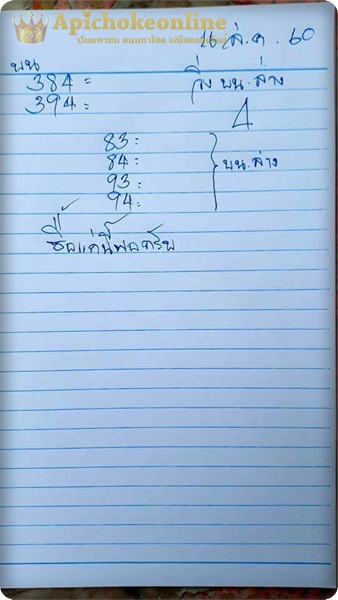 Apichokeonline
เว็บมหาชน คนมหาโชค อภิโชคออนไลน์
16 ส.ค. 60
บน
384 =
394 =
วิ่ง บน.ล่าง
4
83 :
84 :
93 :
94 :
บน.ล่าง
ซื้อแค่นี้พอครับ